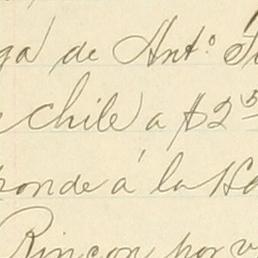 ga de Ant.º
chile a $2 5
ponde á la Ha
Rincon por v